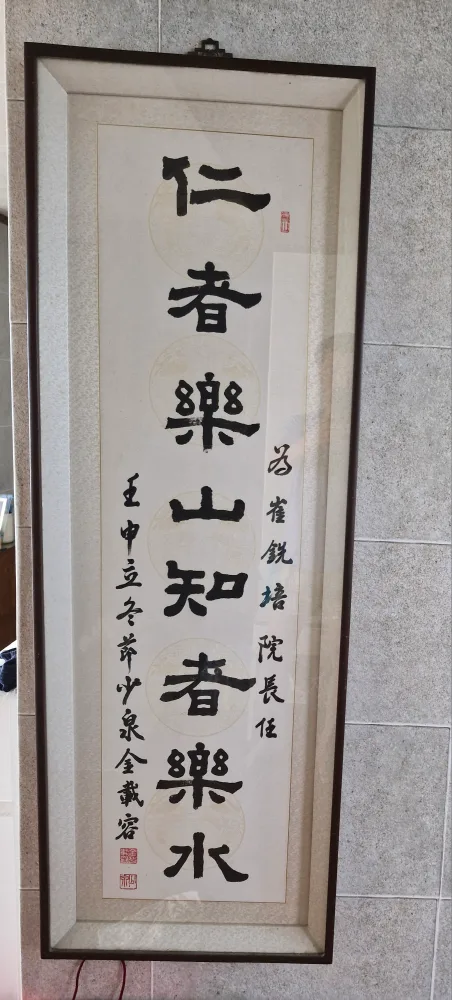 仁者樂山知者樂水
為崔銳培院長任
壬申立冬節少泉金載容